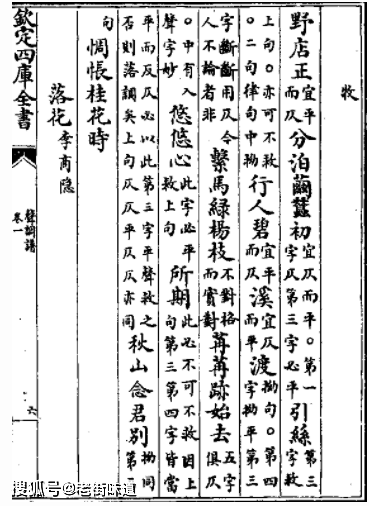 牧
野店正宜平而仄分泊繭蠶初宜仄而平。第一字仄第三字必平引絲第三字救
上句。亦可不救。二句律句中拗行人碧宜平而仄溪宜仄而平渡拗句。第四字拗平第三
字斷斷用仄今人不論者非繫馬綠楊枝不對格而實對苒苒跡始去五字俱仄
。中有入聲字妙悠悠心此字必平救上句所期此必不可不救因上句第三第四字皆當
平而反仄必以此第三字平聲救之否則落調矣上句仄仄平仄仄亦同秋山念君別拗同第一
句惆悵桂花時
落花李商隐
欽定四庫全書
聲調譜
卷一
六
搜狐号@老街味道